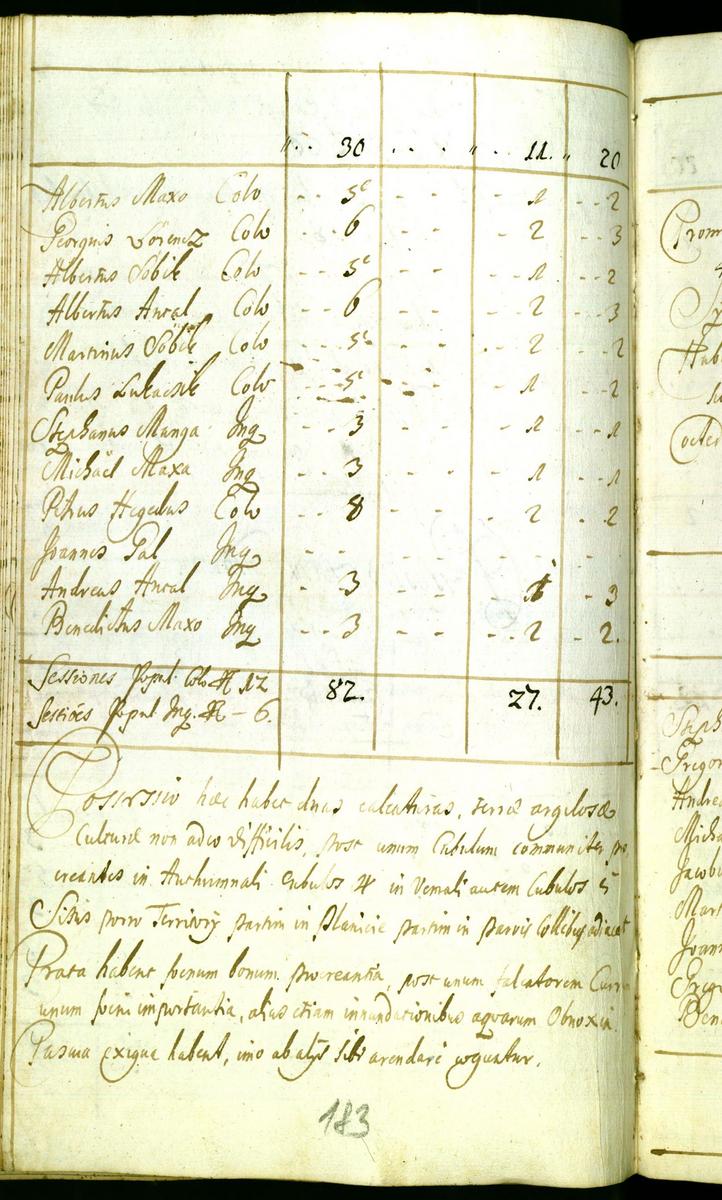 " . . 30 . . . " . . 11. " 20
Albertus Maxo Colo - - 5 - - - 1 - - 2
Georgius Lörencz Colo - - 6 - - - 2 - - 3
Albertus Sobik Colo - - 5 - - - 1 - - 2
Albertus Antal Colo - - 6 - - - 2 - - 3
Martinus Sobik Colo - - 5 - - - 2 - - 2
Paulus Lukacsik Colo - - 5 - - - 1 - - 2
Stephanus Manga Inq - - 3 - - - 1 - - 1
Michael Maxa Inq - - 3 - - - 1 - - 1
Petrus Hegedus Colo - - 8 - - - 2 - 2
Joannes Pal Inq - - - - - - - -
Andreas Antal Inq - - 3 - - - 1 - 3
Benedictus Maxo Inq - - 3 - - - 2 - 2.
Sessiones Popul. Colo 12 82. 27. 43.
Sessiões Popul Inq. - 6.
Possessio hæc habet duas calcaturas, terræ argilosæ
Culturæ non adeo difficilis, post unum Cubulum communiter
creantes in Authumnali Cubulos 4 in Vernali autem Cubulos 5
Sitis porro Territorÿ partim in Planicie partim in parvis Collibus adiacet
Prata habent foenum bonum procreantia, post unum falcatorem
unum foeni importantia, alias etiam innundationibus aquarum Obnoxia
Pascua exigua habent, imo ab alÿs sibi arendare coguntur.
183